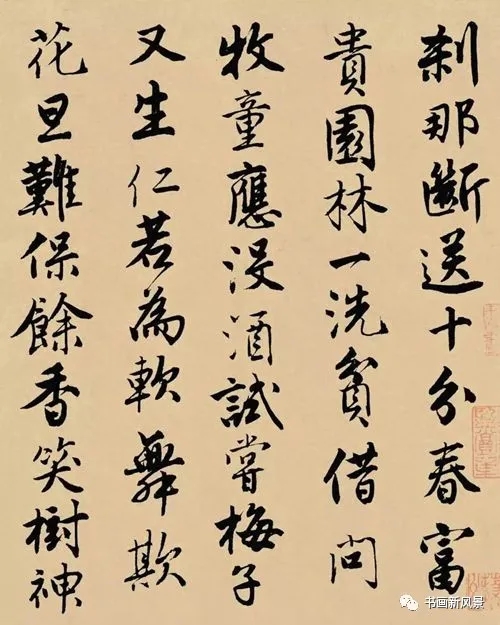 刹那斷送十分春富
貴園林一洗貧借問
牧童應沒酒試嘗梅子
又生仁若為軟舞欺
花旦難保餘香笑樹神
书画新风景